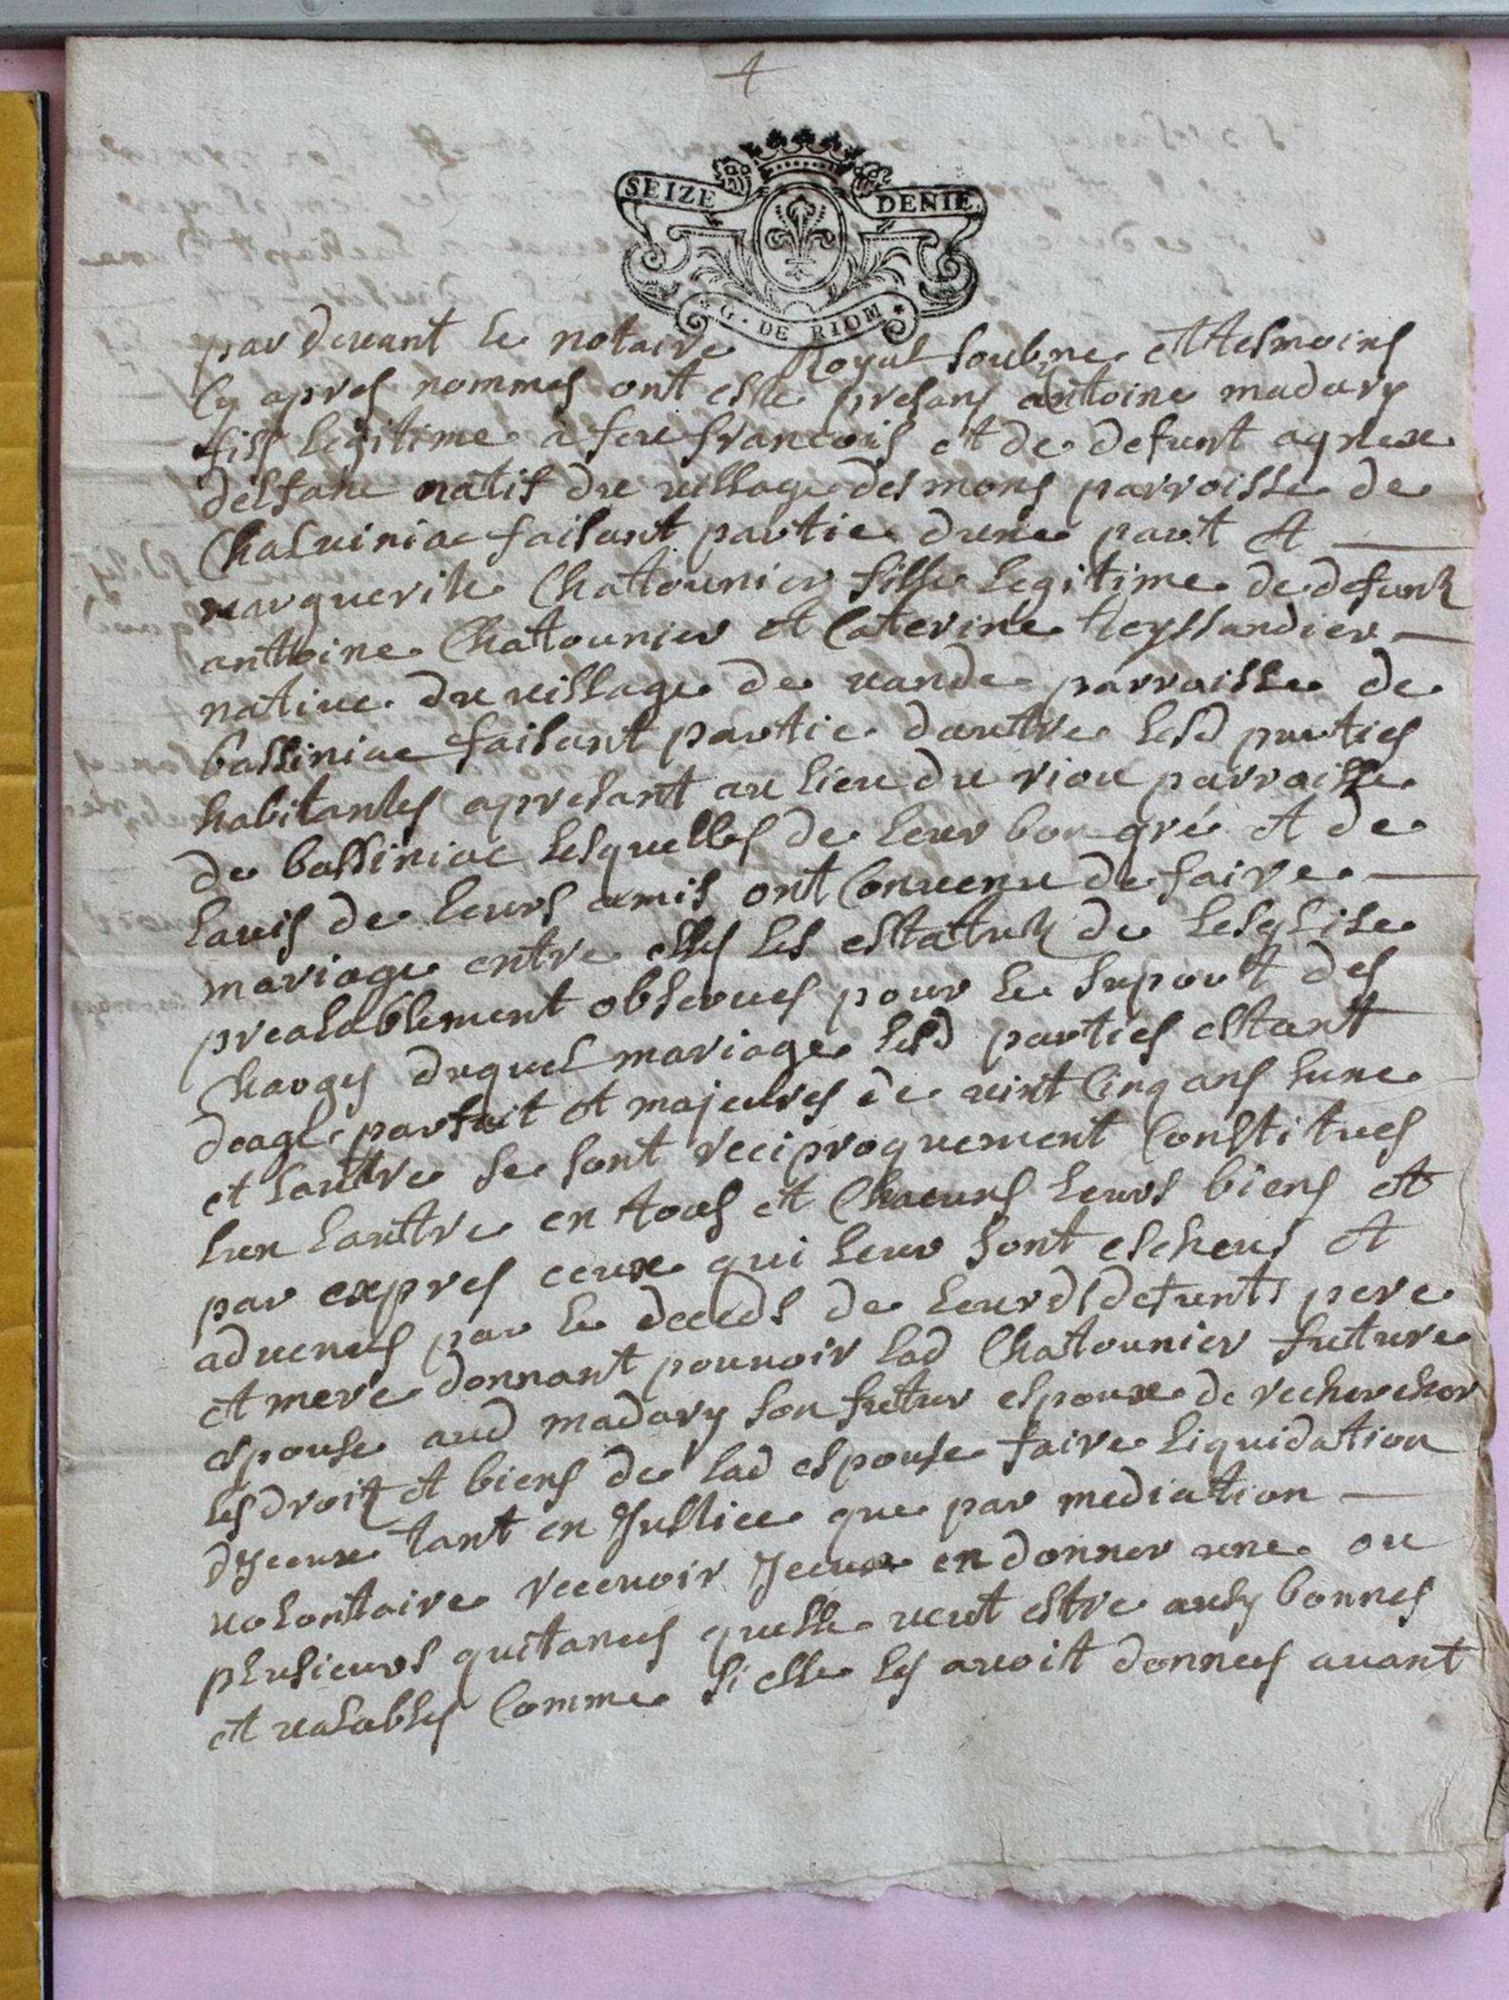 4
SEIZE DENIE.
G. DE RIOM
par devant le notaire Royal soubne et tesmoins
Cy apres nommes ont este presans antoine madary
fils legitime a feu francois et de defunt agnexe
delfane natif du village desmons parroisse de
Chalviniac faisant partie dune part et
marguerite Chatounier fille legitime de defunt
antoine Chatounier et Caterine teyssandier
native du village de vande parroisse de
bassiniac faisant partie dautre lesd parties
habitantes apresant au lieu du riou parroisse
de bassiniac lesquelles de leur bon gré et de
lavis de leurs amis ont Convenu de faire
mariage entre elles les estatuts de lesglise
prealablement observes pour le suport des
Charges duquel mariage lesd parties estant
deage parfait et majeures de vint Cinq ans lune
et lautre se sont reciproquement Constitues
lun lautre en tous et Chacuns leurs biens et
par expres ceux qui leur sont escheus et
advenus par le deceds de leursd defunts pere
et mere donnant pouvoir lad Chatounier future
espouse aud madary son futur espoux de rechercher
les droits et biens de lad espouse faire liquidation
dyceux tant en Justice que par mediation
volontaire recevoir Jceux en donner une ou
plusieurs quitances quelle veut estre ausy bonnes
et valables Comme si elle les avoit donnees avant